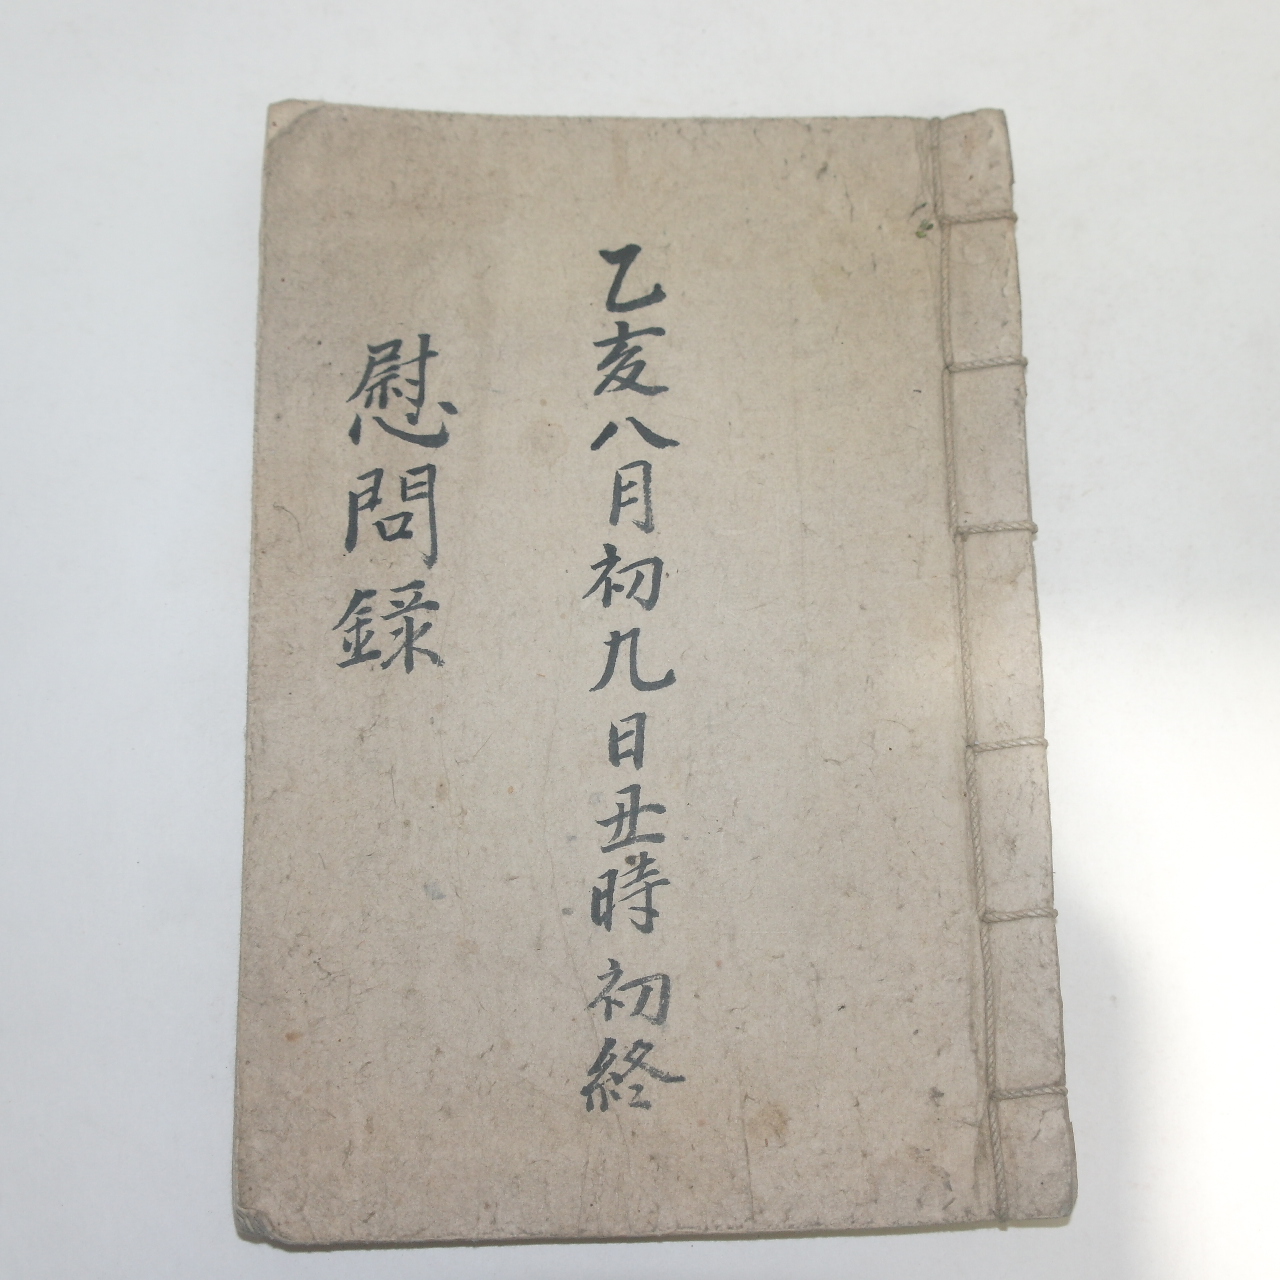 乙亥八月初九日丑時 初終
慰問錄